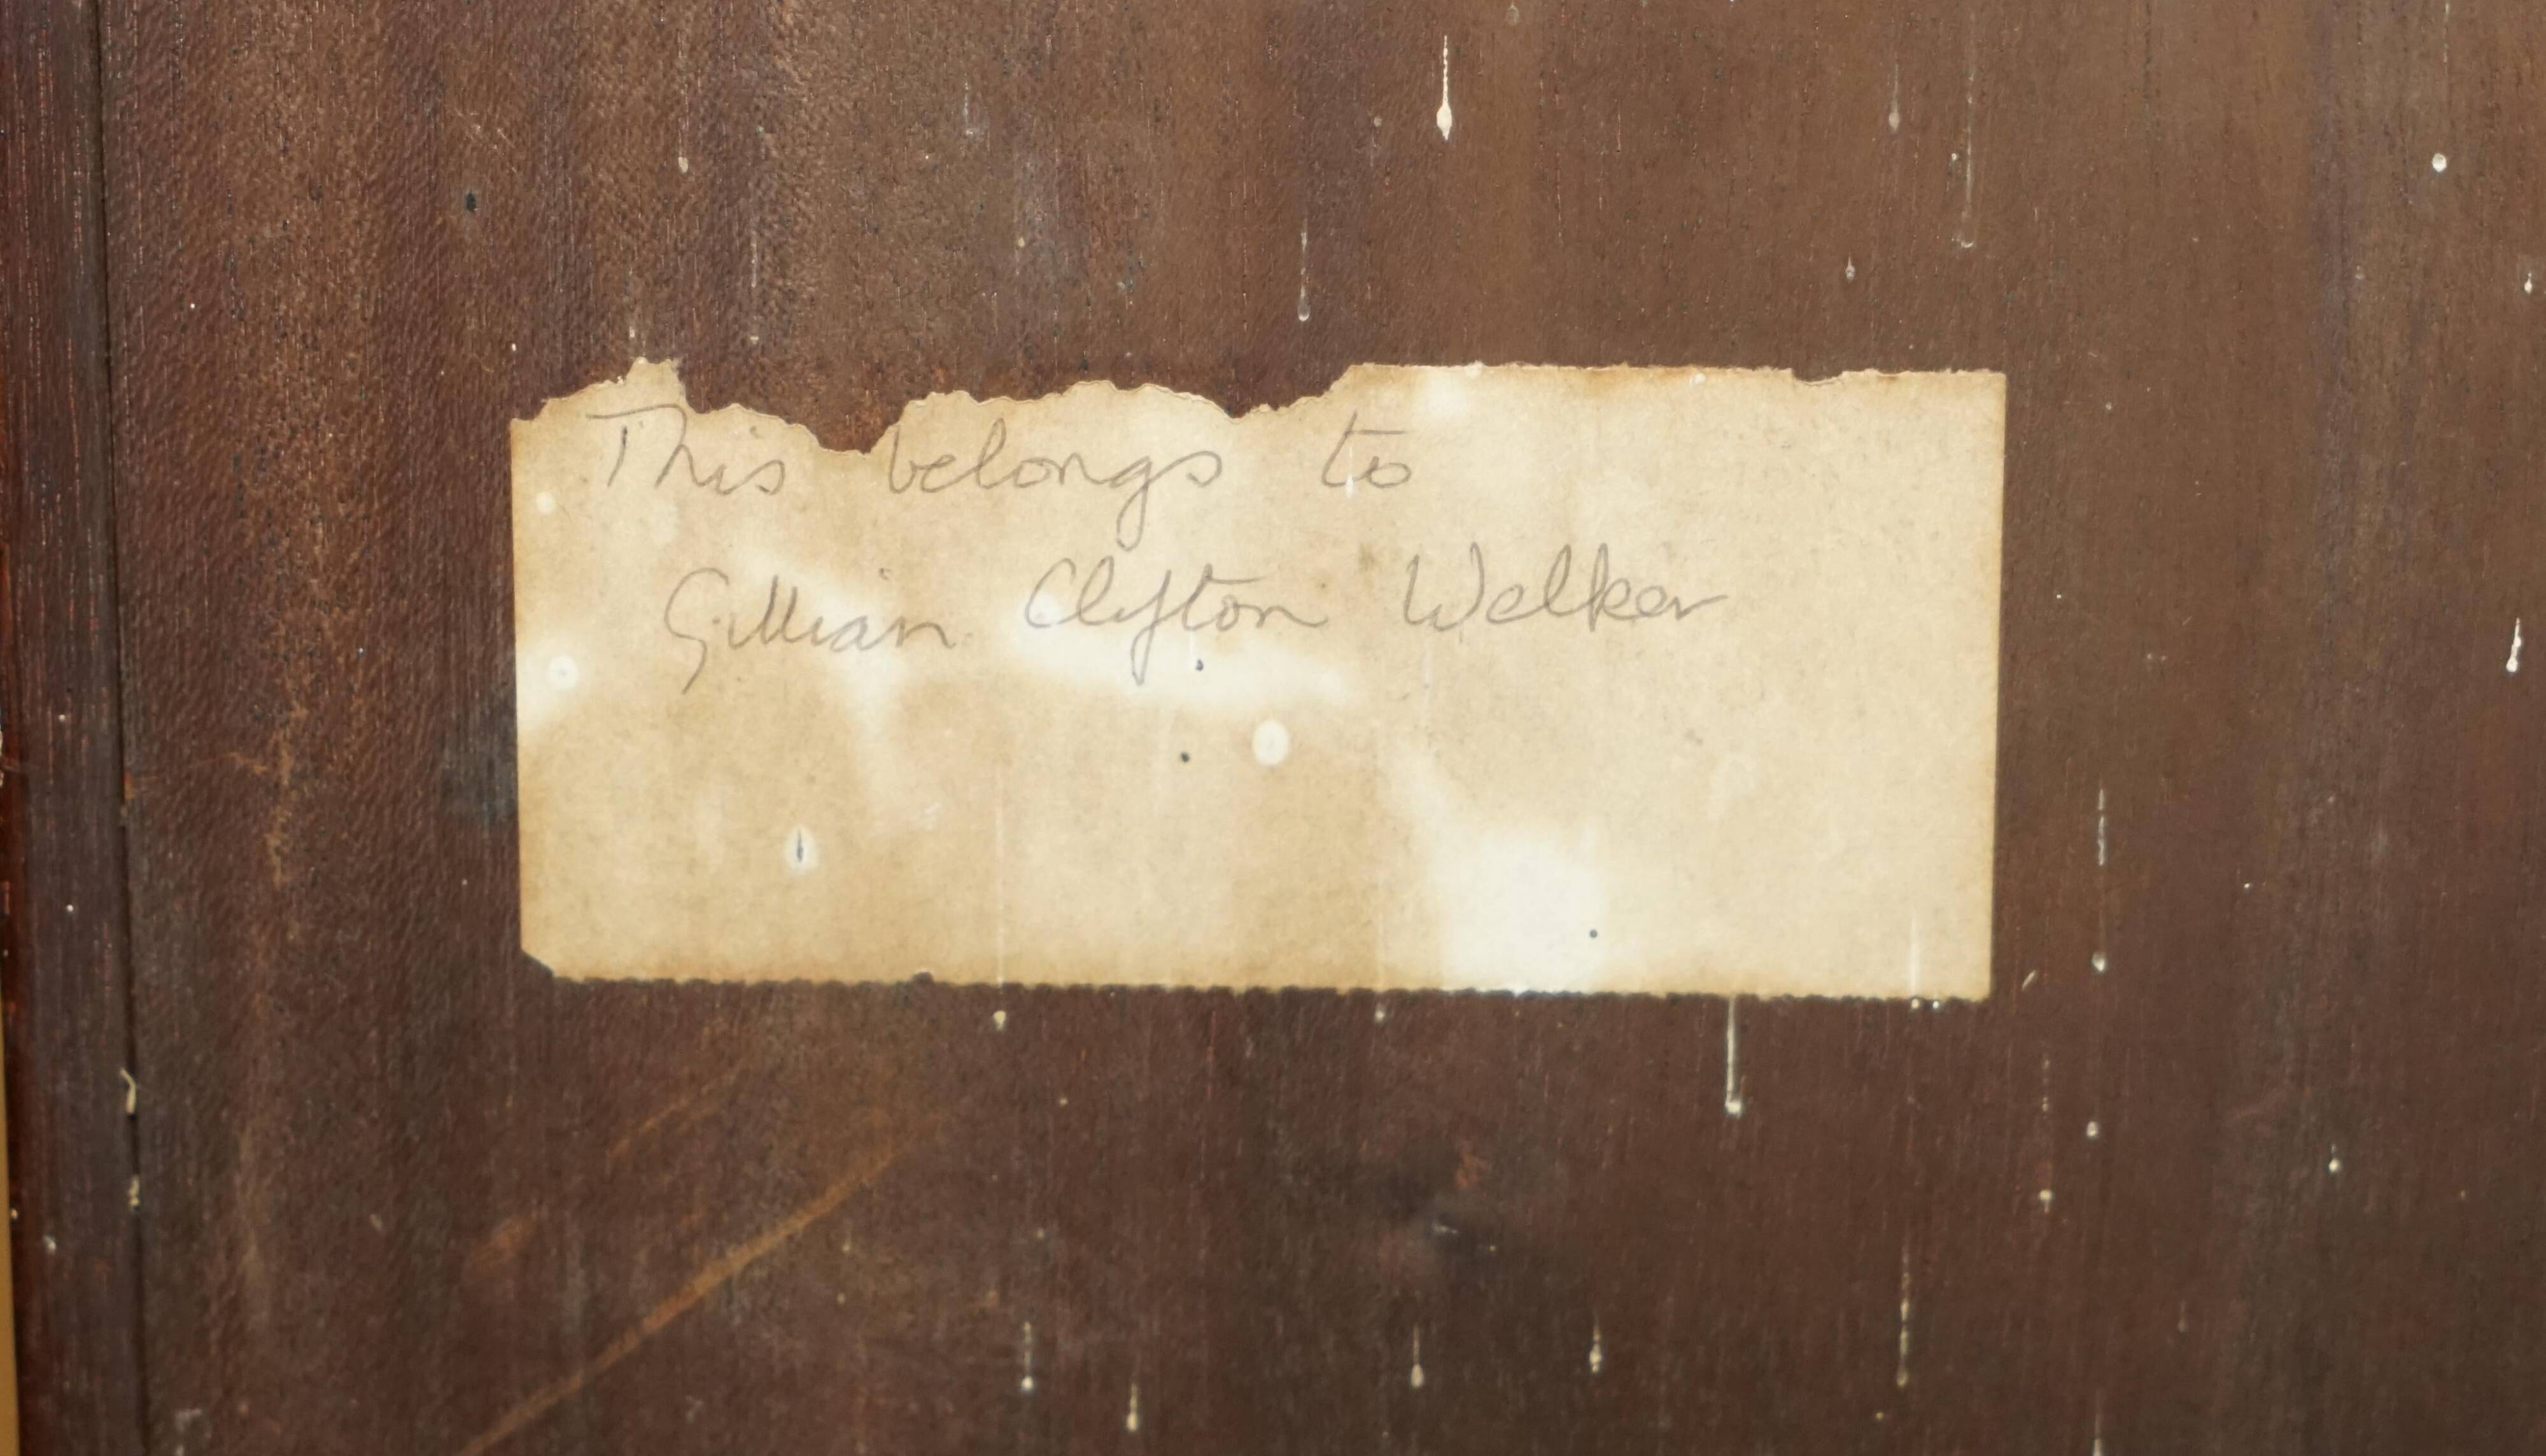 This belongs to
Gillian Clifton Welker